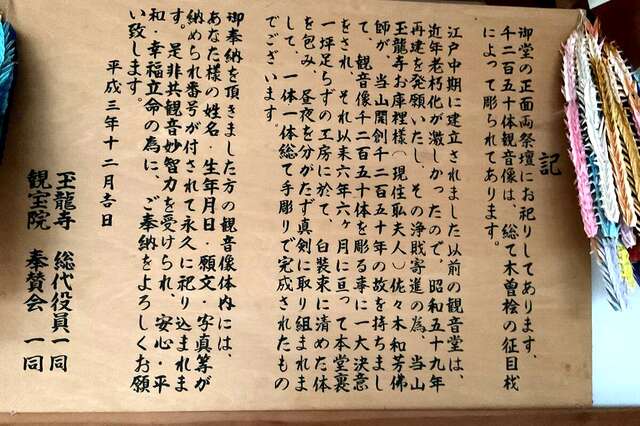 記
御堂の正面両祭壇にお祀りしてあります、
千二百五十体観音像は、総て木曽桧の征目材
によって彫られてあります。
江戸中期に建立されました以前の観音堂は、
近年老朽化が激しかったので、昭和五十九年
再建を発願いたし、その浄財寄進の為、当山
玉龍寺お庫裡様（現住職夫人）佐々木和芳佛
師が、当山開創千二百五十年の故を持ちまし
て、観音像千二百五十体を彫る事に一大決意
をされ、それ以来六年六ヶ月に亘って本堂裏
一坪足らずの工房に於て、白装束に清めた体
を包み、昼夜を分かたず真剣に取り組まれま
して、一体一体総て手彫りで完成されたもの
でございます。
御奉納を頂きました方の観音像体内には、
あなた様の姓名・生年月日・願文・写真等が
納められ番号が付されて永久に祀り込まれま
す。是非共観音妙智力を受けられ、安心・平
和・幸福立命の為に、ご奉納をよろしくお願
い致します。
平成三年十二月吉日
玉龍寺 総代役員一同
観宝院 奉賛会 一同